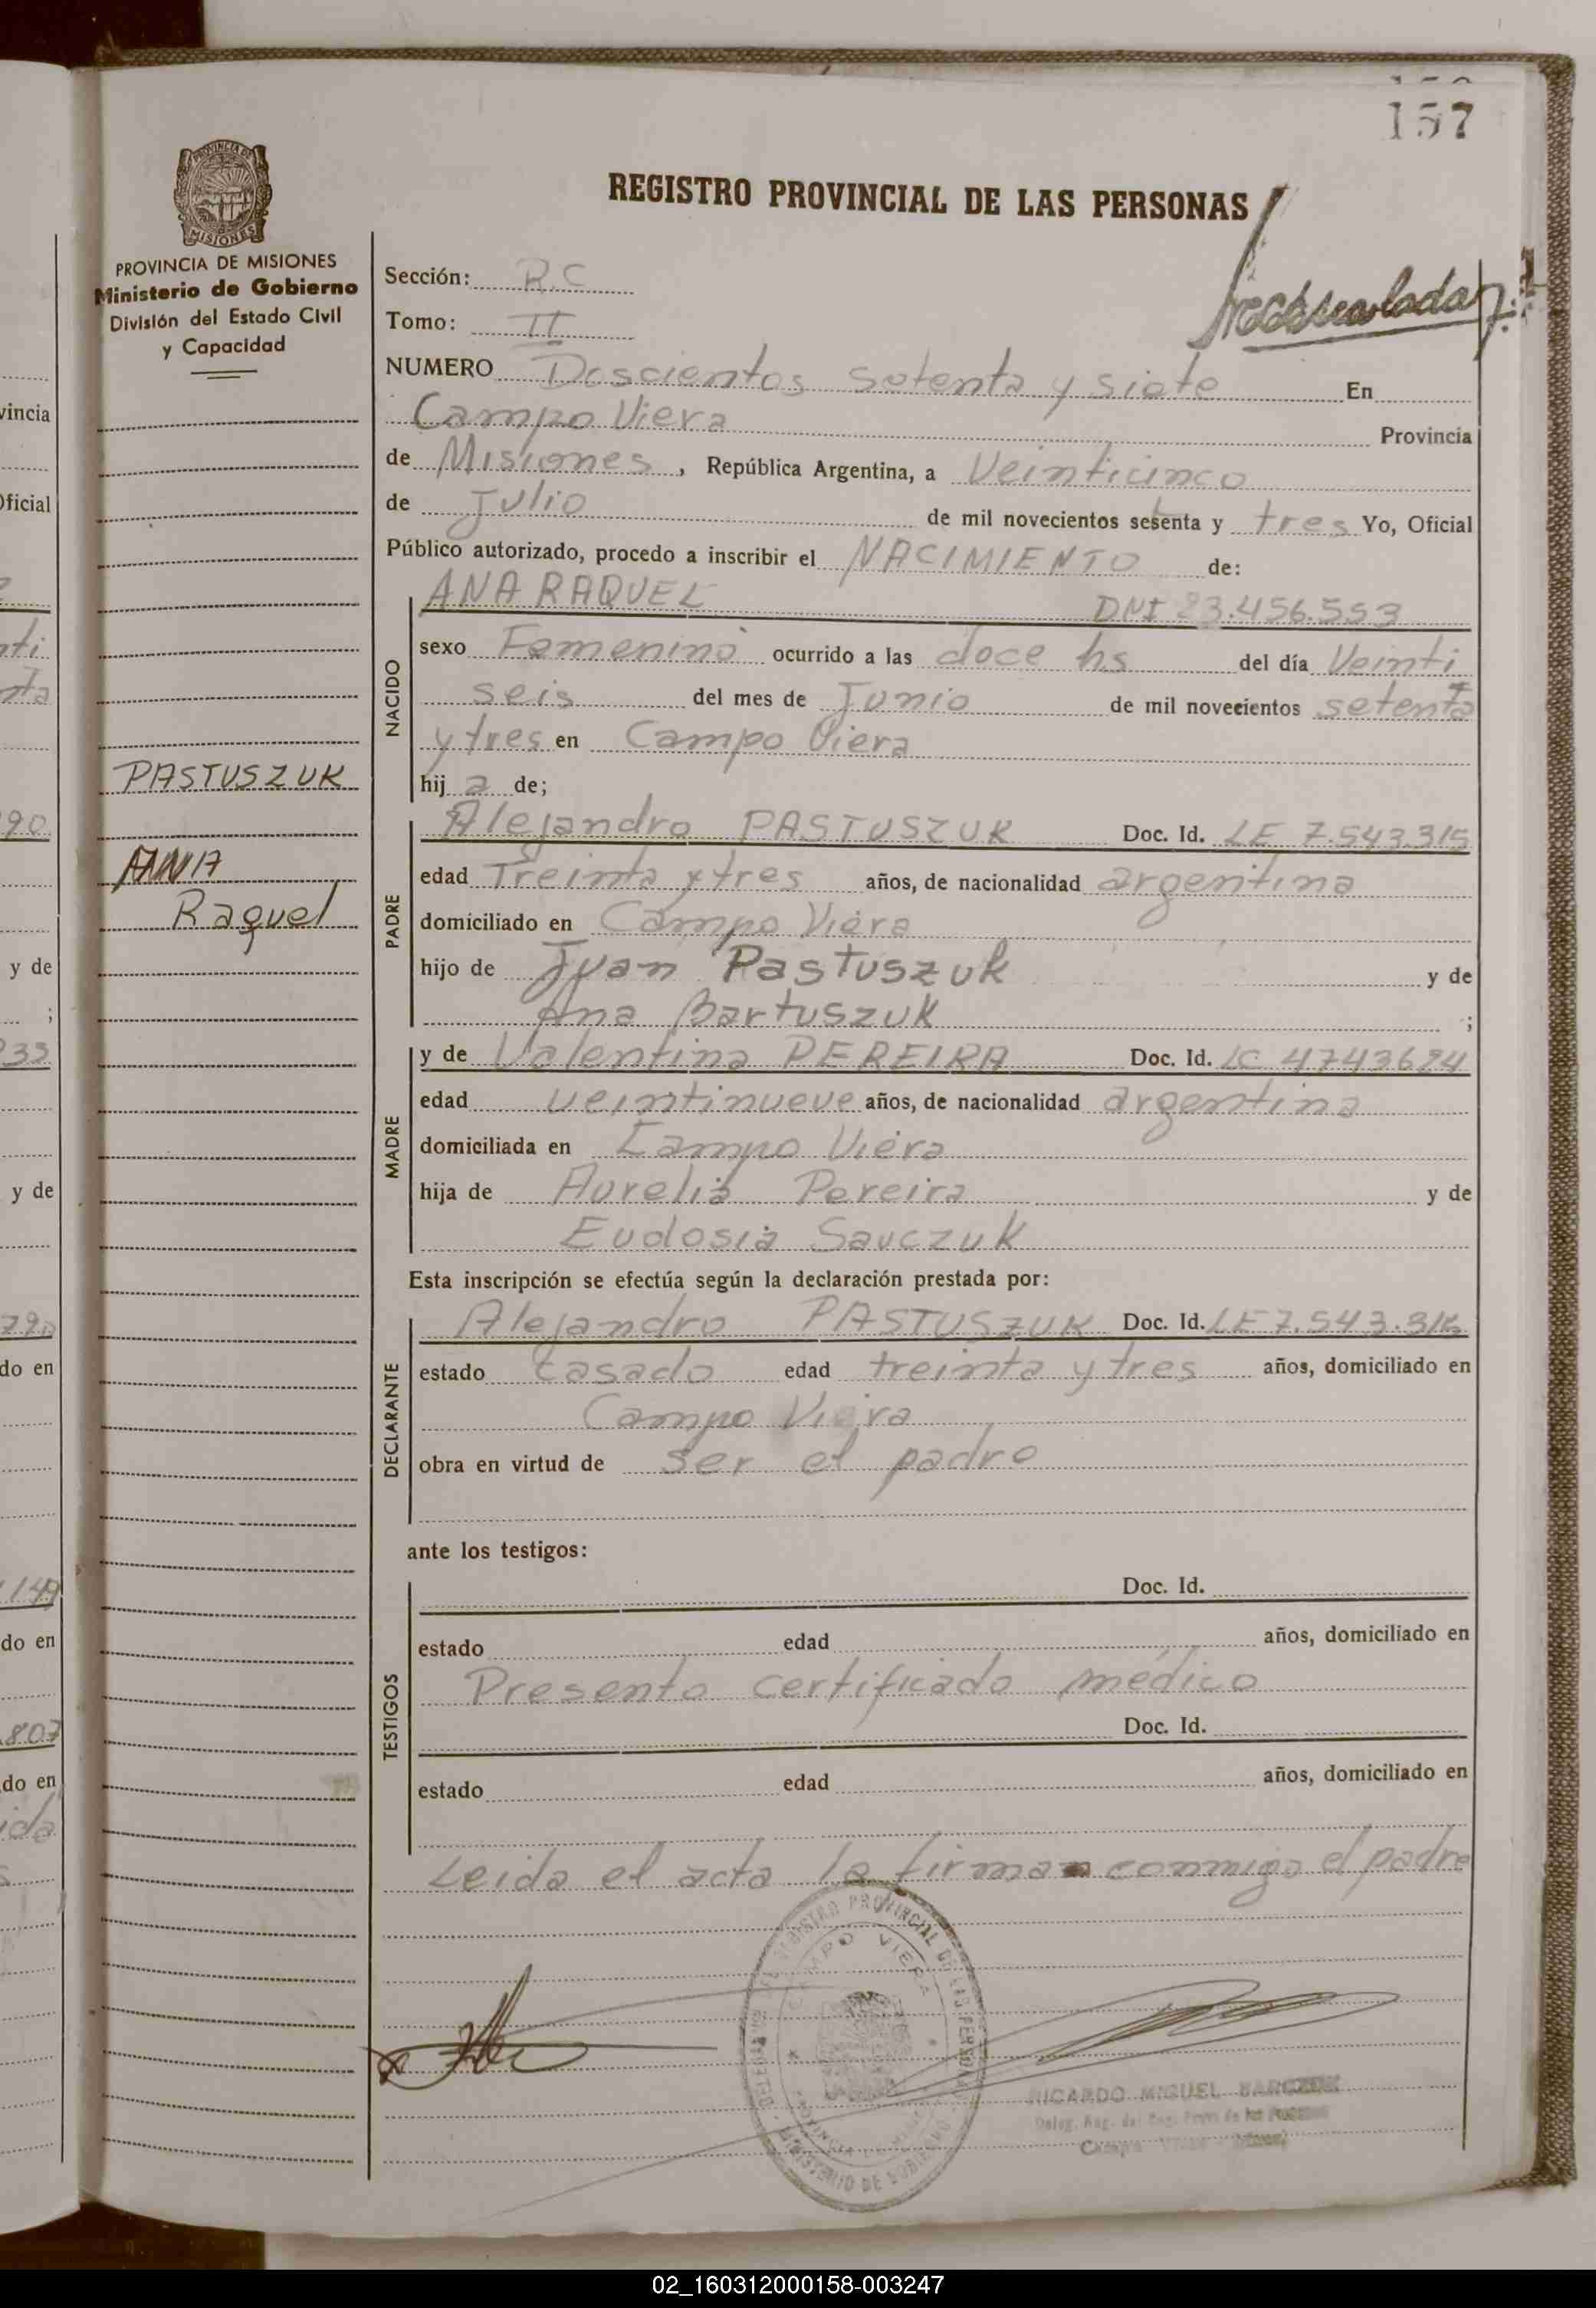 157
PROVINCIA DE MISIONES
Ministerio de Gobierno
División del Estado Civil
y Capacidad
PASTUSZUK
ANA
Raquel
REGISTRO PROVINCIAL DE LAS PERSONAS
Sección: R.C
Tomo: II
NUMERO Doscientos setenta y siete En
Campo Viera Provincia
de Misiones, República Argentina, a Veinticinco
de Julio de mil novecientos setenta y tres Yo, Oficial
Público autorizado, procedo a inscribir el NACIMIENTO de:
ANA RAQUEL DNI 23.456.553
NACIDO
sexo Femenino ocurrido a las doce hs del día Veinti
seis del mes de Junio de mil novecientos setenta
y tres en Campo Viera
hij a de;
PADRE
Alejandro PASTUSZUK Doc. Id. LE 7.543.315
edad Treinta y tres años, de nacionalidad argentina
domiciliado en Campo Viera
hijo de Juan Pastuszuk y de
Ana Bartuszuk ;
MADRE
y de Valentina PEREIRA Doc. Id. LC 4743624
edad veintinueve años, de nacionalidad argentina
domiciliada en Campo Viera
hija de Aurelia Pereira y de
Eudosia Sauczuk
Esta inscripción se efectúa según la declaración prestada por:
DECLARANTE
Alejandro PASTUSZUK Doc. Id. LE 7.543.315
estado casado edad treinta y tres años, domiciliado en
Campo Viera
obra en virtud de ser el padre
ante los testigos:
TESTIGOS
Doc. Id.
estado edad años, domiciliado en
Presento certificado médico
Doc. Id.
estado edad años, domiciliado en
Leida el acta la firma conmigo el padre
REGISTRO PROVINCIAL DE LAS PERSONAS
CAMPO VIERA
MINISTERIO DE GOBIERNO
RICARDO MIGUEL
vincia
Oficial
90
y de
;
y de
do en
149
do en
807
do en
02_160312000158-003247